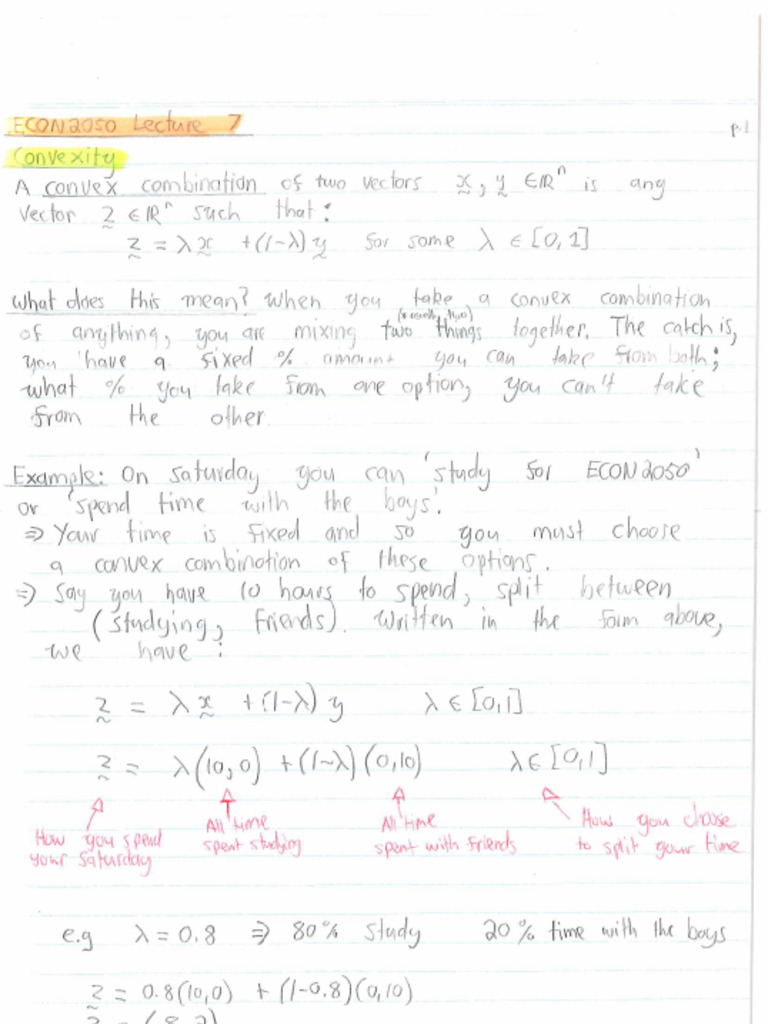 ECON2050 Lecture 7
p.1
Convexity
A convex combination of two vectors x, y ∈ ℝⁿ is any
vector z ∈ ℝⁿ such that:
z = λx + (1-λ)y for some λ ∈ [0,1]
What does this mean? When you take a convex combination
of anything, you are mixing two things together. The catch is,
you have a fixed % amount you can take from both;
what % you take from one option, you can't take
from the other
Example: On Saturday you can 'study for ECON2050'
or 'spend time with the boys'.
⇒ Your time is fixed and so you must choose
a convex combination of these options.
⇒ Say you have 10 hours to spend, split between
(studying, friends). Written in the form above,
we have:
z = λx + (1-λ)y λ ∈ [0,1]
z = λ(10,0) + (1-λ)(0,10) λ ∈ [0,1]
How you spend your Saturday
All time spent studying
All time spent with friends
How you choose to split your time
e.g λ = 0.8 ⇒ 80% study 20% time with the boys
z = 0.8(10,0) + (1-0.8)(0,10)
z = (8,2)